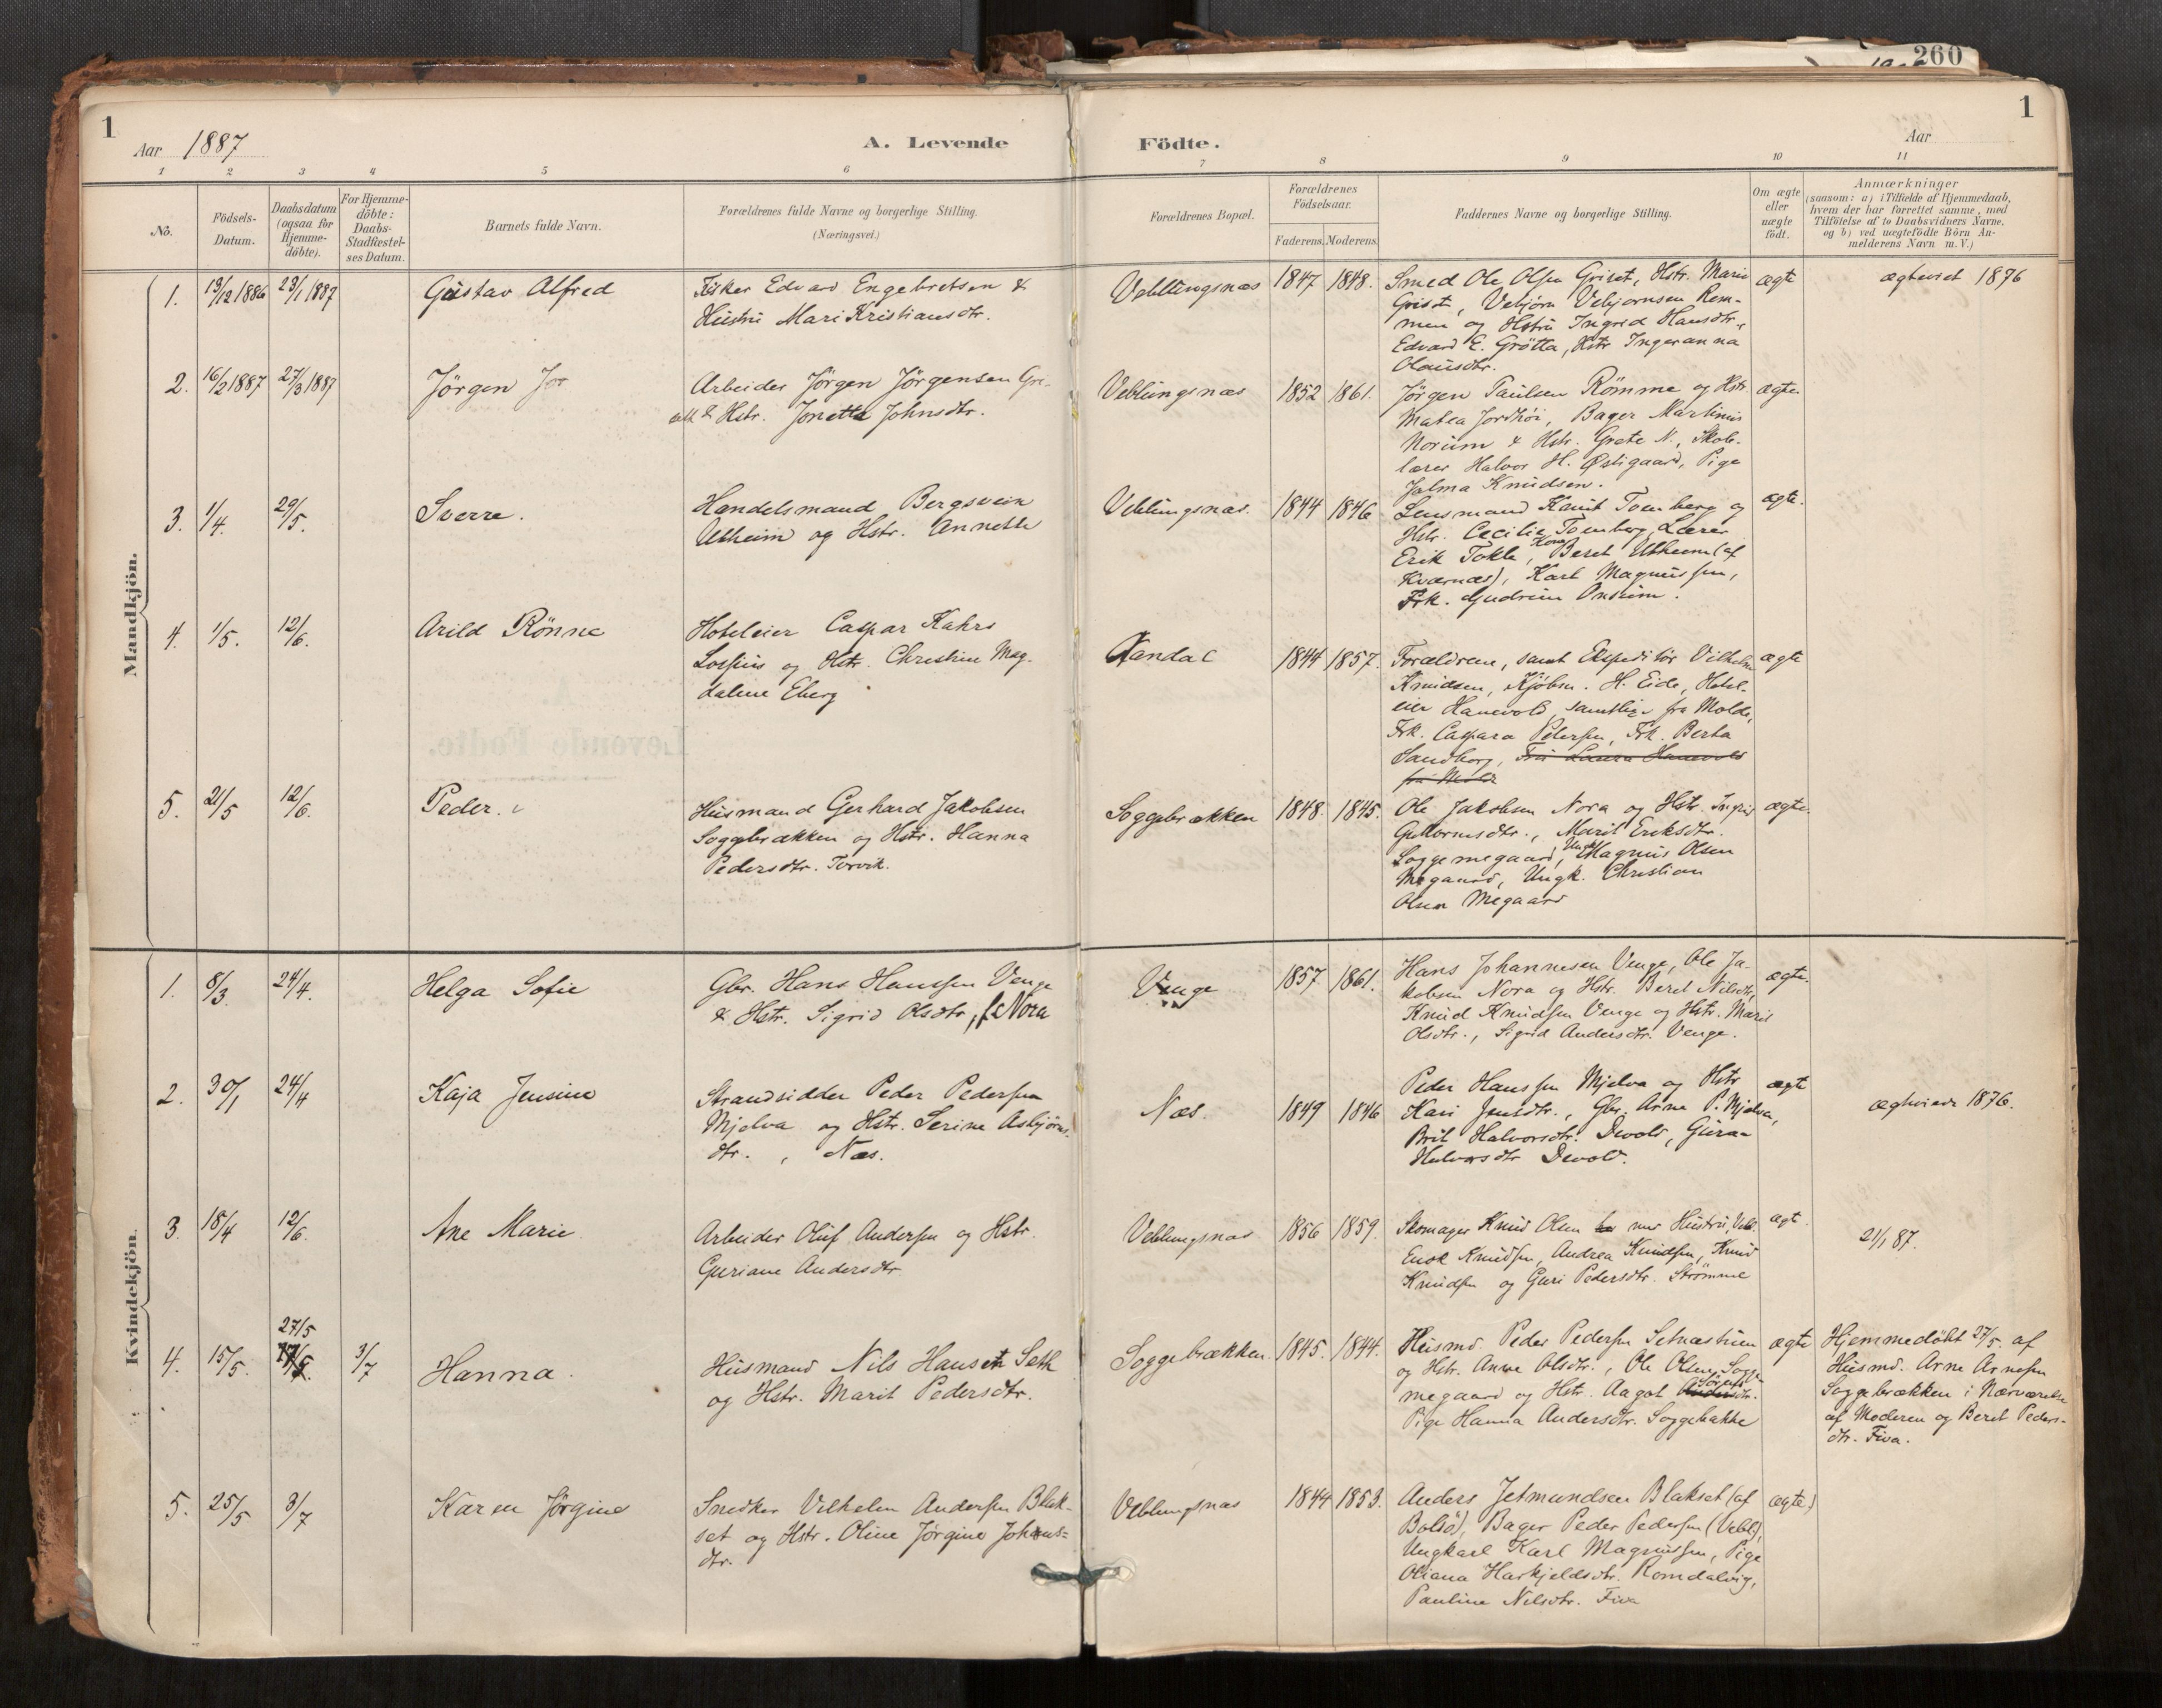 260
1
Aar 1887
A. Levende
Födte.
Aar
1
1 2 3 4 5 6 7 8 9 10 11
No.
Födsels-
Datum.
Daabsdatum
(ogsaa for
Hjemme-
döbte).
For Hjemme-
döbte:
Daabs-
Stadfæstel-
ses Datum.
Barnets fulde Navn.
Forældrenes fulde Navne og borgerlige Stilling.
(Næringsvei.)
Forældrenes Bopæl.
Forældrenes
Födselsaar.
Faderens. Moderens.
Faddernes Navne og borgerlige Stilling.
Om ægte
eller
uægte
födt.
Anmærkninger
(saasom: a) i Tilfælde af Hjemmedaab,
hvem der har forrettet samme, med
Tilföielse af to Daabsvidners Navne,
og b) ved uægtefödte Börn An-
melderens Navn m. V.)
Mandkjön.
1. 13/12 1886 23/1 1887 Gustav Alfred
Fisker Edvard Engebretsen &
Hustru Mari Kristiansdtr.
Veblungsnæs 1847 1848.
Smed Ole Olsen Griset, Hstr. Marie
Griset, Vebjörn Vebjornsen Rem-
men og Hstru Ingrid Hansdtr,
Edvard E. Grötta, Hstr Ingeranna
Olausdtr.
ægte
ægteviet 1876
2. 16/2 1887 27/3 1887 Jörgen
Arbeider Jörgen Jörgensen Gri-
sett & Hstr. Jonetta Johnsdtr.
Veblungsnæs 1852 1861.
Jörgen Paulsen Römme og Hstr.
Matea Jordhöi, Bager Martinus
Norum & Hstr. Grete N., Skole-
lærer Halvor H. Østigaard, Pige
Jalma Knudsen.
ægte
3. 1/4. 29/5. Sverre.
Handelsmand Bergsvein
Utheim og Hstr. Annette
Veblungsnæs. 1844 1846
Lensmand Knut Tomberg og
Hstr. Cecilie Tomberg, Lærer
Erik Tokle, Kone Beret Utheim (af
Kværnæs), Karl Magnussen,
Frk. Gudrun Onsum.
ægte.
4. 1/5. 12/6. Arild Rönne
Hoteleier Caspar Kahrs
Lossius og Hstr. Christine Mag-
dalene Eberg
Aandal 1844 1857.
Forældrene, samt Ekspeditör Vilhelm
Knudsen, Kjöbm. H. Eide, Hotel-
eier Hanevold samtlige fra Molde,
Frk. Caspara Petersen, Frk. Berta
Sandborg, Fru Laura Hanevold
fra Molde
ægte
5. 21/5 12/6. Peder.
Husmand Gerhard Jakobsen
Soggebrækken og Hstr. Hanna
Pedersdtr. Torvik.
Soggebrækken 1848. 1845.
Ole Jakobsen Nora og Hstr. Ingrid
Guttormsdtr., Marit Eriksdtr.
Soggemegaard, Ungk. Magnus Olsen
Megaard, Ungk. Christian
Olsen Megaard
ægte.
Kvindekjön.
1. 8/3. 24/4. Helga Sofie
Gbr. Hans Hanssen Venge
& Hstr. Sigrid Olsdtr, f. Nora
Venge 1857 1861.
Hans Johannesen Venge, Ole Ja-
kobsen Nora og Hstr. Beret Nilsdtr,
Knud Knudsen Venge og Hstr. Marit
Olsdtr., Sigrid Andersdtr. Venge.
ægte.
2. 30/1 24/4 Kaja Jensine
Strandsidder Peder Pedersen
Mjelva og Hstr. Serine Asbjörns-
dtr., Næs.
Næs. 1849 1846
Peder Hanssen Mjelva og Hstr
Kari Jensdtr., Gbr. Arne P. Mjelva,
Brit Halvorsdtr. Devold, Gura
Halvorsdtr Devold.
ægte
ægteviede 1876.
3. 18/4 12/6. Ane Marie
Arbeider Oluf Andersen og Hstr.
Guriane Andersdtr
Veblungsnæs 1856 1859.
Skomager Knud Olsen med Hustru, Vebl.
Enok Knudsen, Andrea Knudsen, Knud
Knudsen og Guri Pedersdtr. Strömme
ægte.
21/1 87.
4. 15/5. 27/5 3/7 Hanna.
Husmand Nils Hansen Seth
og Hstr. Marit Pedersdtr.
Soggebrækken. 1845. 1844.
Husmd. Peder Pedersen Setnæstuen
og Hstr. Anne Olsdtr., Ole Olsen Sogge-
megaard og Hstr. Aagot Andersdtr.
Pige Hanna Andersdtr. Soggebakke
ægte
Hjemmedöbt 27/5. af
Husmd. Arne Arnesen
Soggebrækken i Nærværelse
af Moderen og Beret Peders-
dtr. Fiva.
5. 25/5 3/7 Karen Jörgine
Snedker Vilhelm Andersen Blak-
set og Hstr. Oline Jörgine Johans-
dtr.
Veblungsnæs 1844 1853.
Anders Jetmundsen Blakset (af
Bolsö), Bager Peder Pedersen (Vebl.),
Ungkarl Karl Magnussen, Pige
Oliana Harkjeldsdtr. Romdalvig,
Pauline Nilsdtr. Fiva
ægte